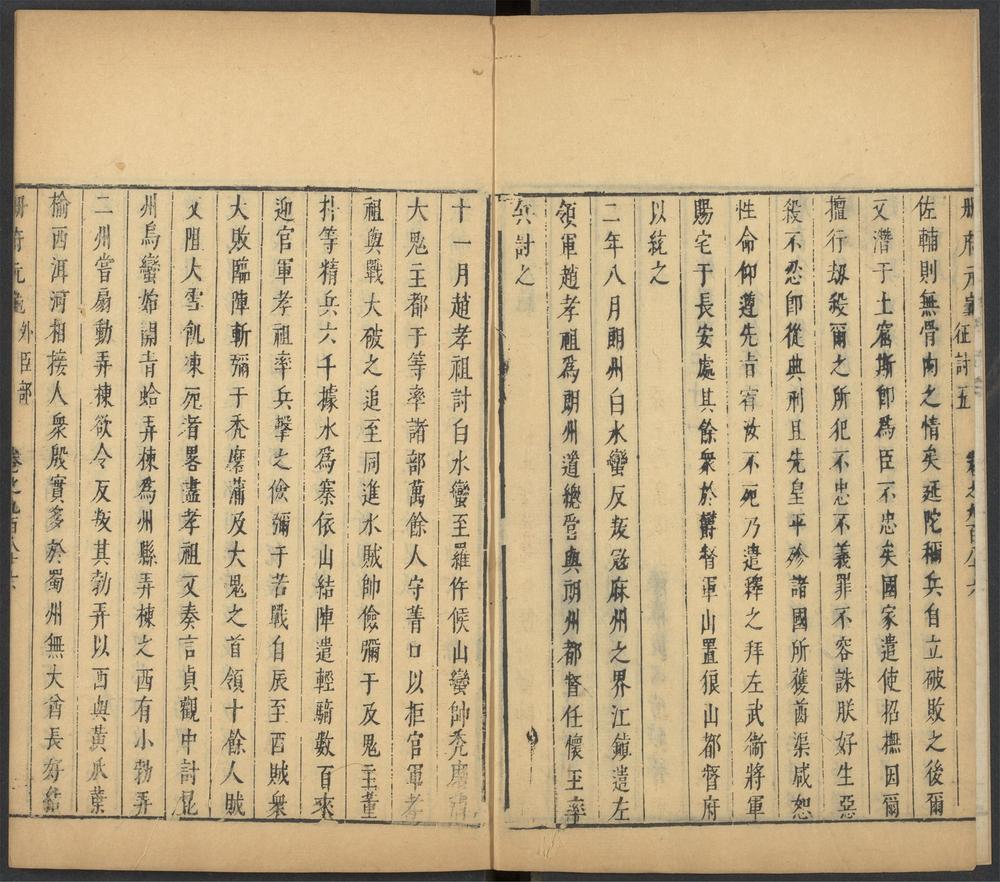 冊府元龜 征討五 卷之九百八十六
佐輔則無骨肉之情矣延陀稱兵自立破敗之後爾
又潛于土窟斯卽爲臣不忠矣國家遣使招撫因爾
擅行刼殺爾之所犯不忠不義罪不容誅朕好生惡
殺不忍卽從典刑且先皇平殄諸國所獲酋渠咸恕
性命仰遵先旨宥汝不死乃遣釋之拜左武衞將軍
賜宅于長安處其餘衆於欝督軍山置狼山都督府
以統之
二年八月朗州白水蠻反叛寇麻州之界江鎮遣左
領軍趙孝祖爲朗州道總管與朗州都督任懷王率
兵討之
十一月趙孝祖討白水蠻至羅仵候山蠻帥禿磨蒲
大鬼主都于等率諸部萬餘人守菁口以拒官軍孝
祖與戰大破之追至同進水賊帥儉彌于及鬼主董
朴等精兵六千據水爲寨依山結陣遣輕騎數百來
迎官軍孝祖率兵擊之儉彌于苦戰自辰至酉賊衆
大敗臨陣斬彌于禿磨蒲及大鬼之首領十餘人賊
又阻大雪飢凍死者畧盡孝祖又奏言貞觀中討昆
州烏蠻始開青蛤弄棟爲州縣弄棟之西有小勃弄
二州嘗扇動弄棟欲令反叛其勃弄以西與黃瓜葉
榆西洱河相接人衆殷實多於蜀州無大酋長好結
冊府元龜 外臣部 卷之九百八十六